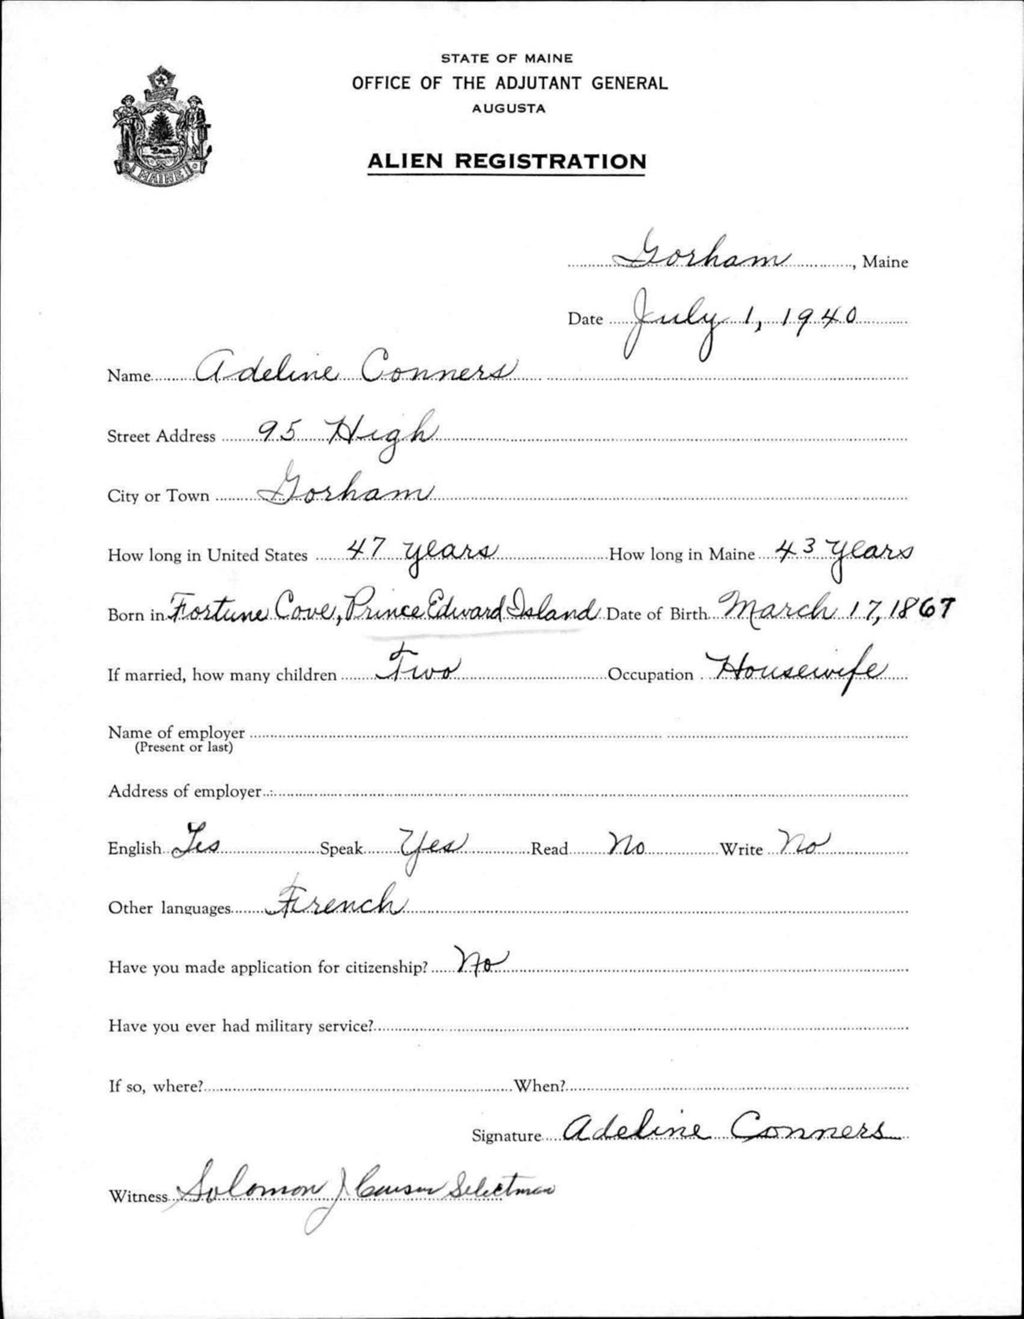 STATE OF MAINE
OFFICE OF THE ADJUTANT GENERAL
AUGUSTA
ALIEN REGISTRATION
MAINE
Gorham, Maine
Date July 1, 1940
Name Adeline Conners
Street Address 95 High
City or Town Gorham
How long in United States 47 years How long in Maine 43 years
Born in Fortune Cove, Prince Edward Island Date of Birth March 17, 1867
If married, how many children Two Occupation Housewife
Name of employer
(Present or last)
Address of employer
English Yes Speak Yes Read No Write No
Other languages French
Have you made application for citizenship? No
Have you ever had military service?
If so, where? When?
Signature Adeline Conners
Witness Solomon J Selectman